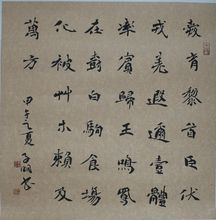 愛育黎首臣伏
戎羌遐邇壹體
率賓歸王鳴鳳
在樹白駒食場
化被草木賴及
萬方
甲午之夏